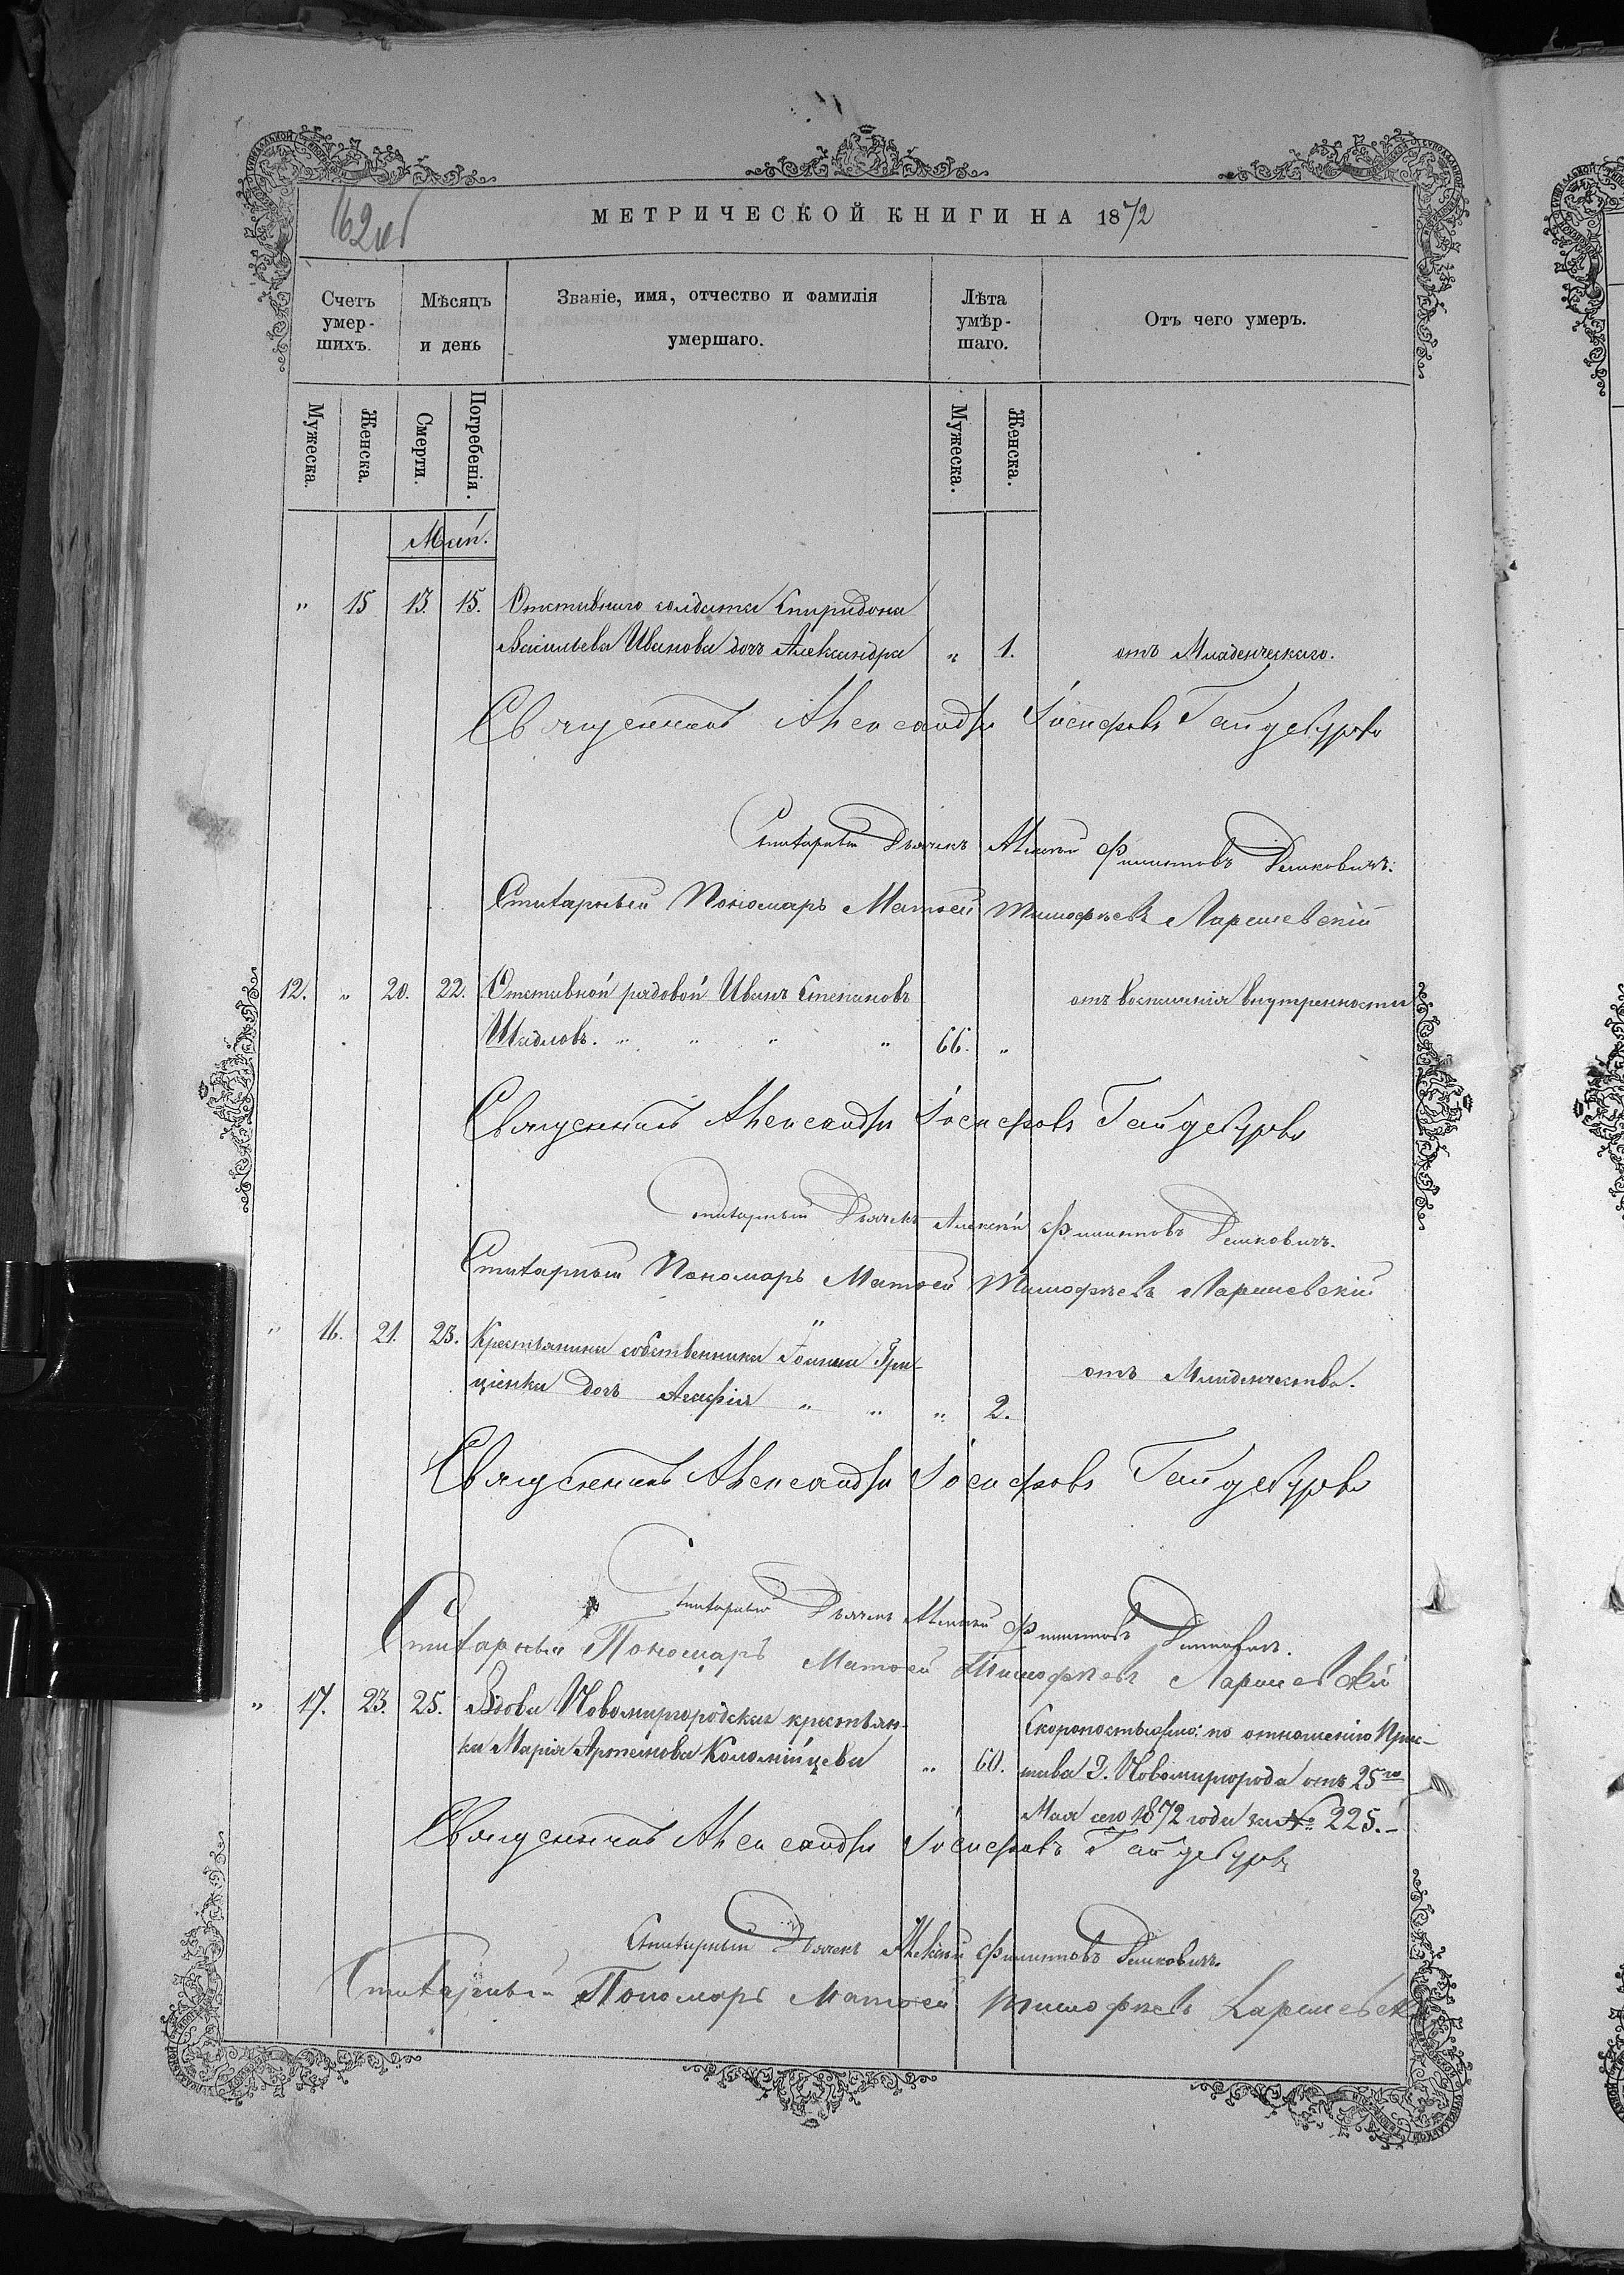 МЕТРИЧЕСКОЙ КНИГИ НА 1872
Счетъ умер- шихъ.
Мѣсяцъ и день
Званіе, имя, отчество и фамилія умершаго.
Лѣта умѣр- шаго.
Отъ чего умеръ.
Мужеска.
Женска.
Смерти.
Погребенія.
Мужеска.
Женска.
Май.
" 15 13. 15. Отставнаго солдата Спиридона
Васильева Иванова дочь Александра " 1. отъ Младенческаго.
Священникъ Александръ Іосифовъ Гайдебуровъ
Стихарный Дьячекъ Алексѣй Филиповъ Дашковичъ.
Стихарный Пономарь Матѳей Тимофѣевъ Ларшевскій
12. " 20. 22. Отставной рядовой Иванъ Степановъ отъ воспаленія внутренности
Шадловъ. " " " " 66. "
Священникъ Александръ Іосифовъ Гайдебуровъ
Стихарный Дьячекъ Алексѣй Филиповъ Дашковичъ.
Стихарный Пономарь Матѳей Тимофѣевъ Ларшевскій
" 16. 21. 23. Крестьянина собственника Гри-
ценка дочь Агафія " " " 2. отъ Младенчества.
Священникъ Александръ Іосифовъ Гайдебуровъ
Стихарный Дьячекъ Алексѣй Филиповъ Дашковичъ.
Стихарный Пономарь Матѳей Тимофѣевъ Ларшевскій
" 17. 23. 25. Вдова Новомиргородская крестьян- Скоропостижно: по отношенію Прис-
ка Марія Артемова Коломійцева " 60. тава Г. Новомиргорода отъ 25го
Мая сего 1872 года за № 225.-
Священникъ Александръ Іосифовъ Гайдебуровъ
Стихарный Дьячекъ Алексѣй Филиповъ Дашковичъ.
Стихарный Пономарь Матѳей Тимофѣевъ Ларшевскій